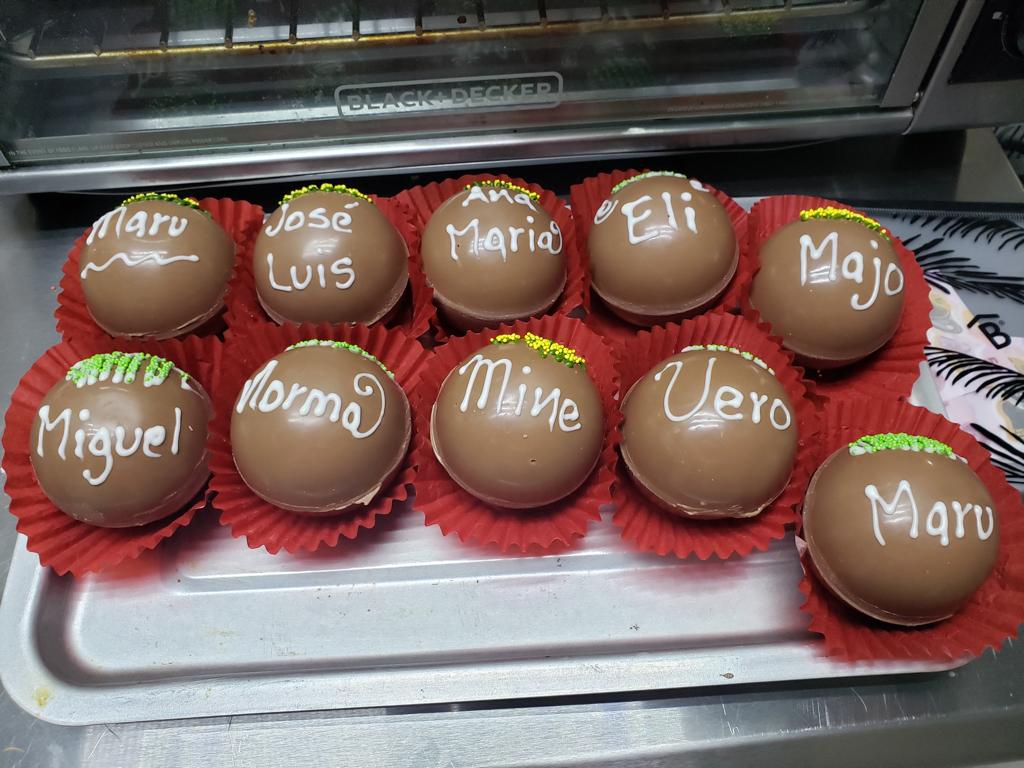 BLACK+DECKER
Maru
José
Luis
Ana
Maria
Eli
Majo
Miguel
Norma
Mine
Vero
Maru
B